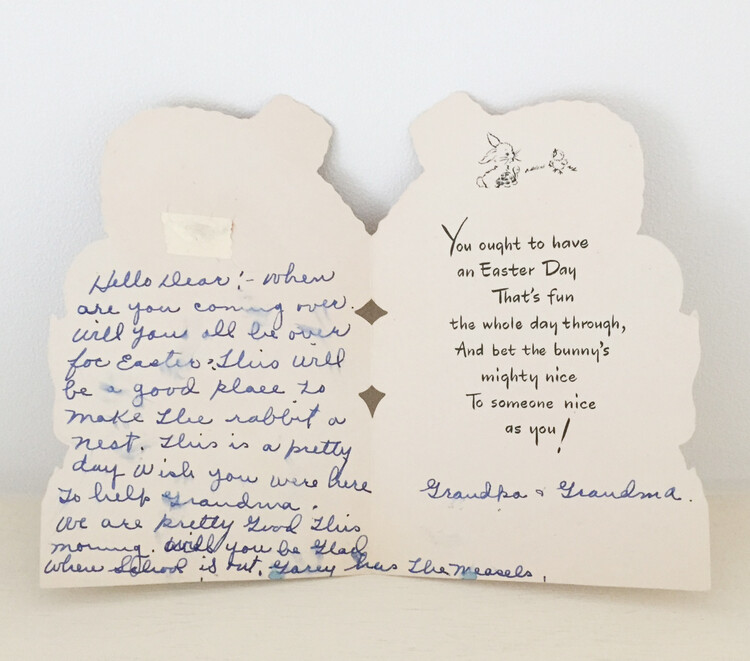 Hello Dear! - When
are you coming over.
Will you all be over
for Easter? This Will
be a good place to
make the rabbit a
nest. This is a pretty
day Wish you were here
To help Grandma.
We are pretty Good This
morning. Will you be Glad
When School is out. Garey has The Measels.
You ought to have
an Easter Day
That's fun
the whole day through,
And bet the bunny's
mighty nice
To someone nice
as you!
Grandpa & Grandma.